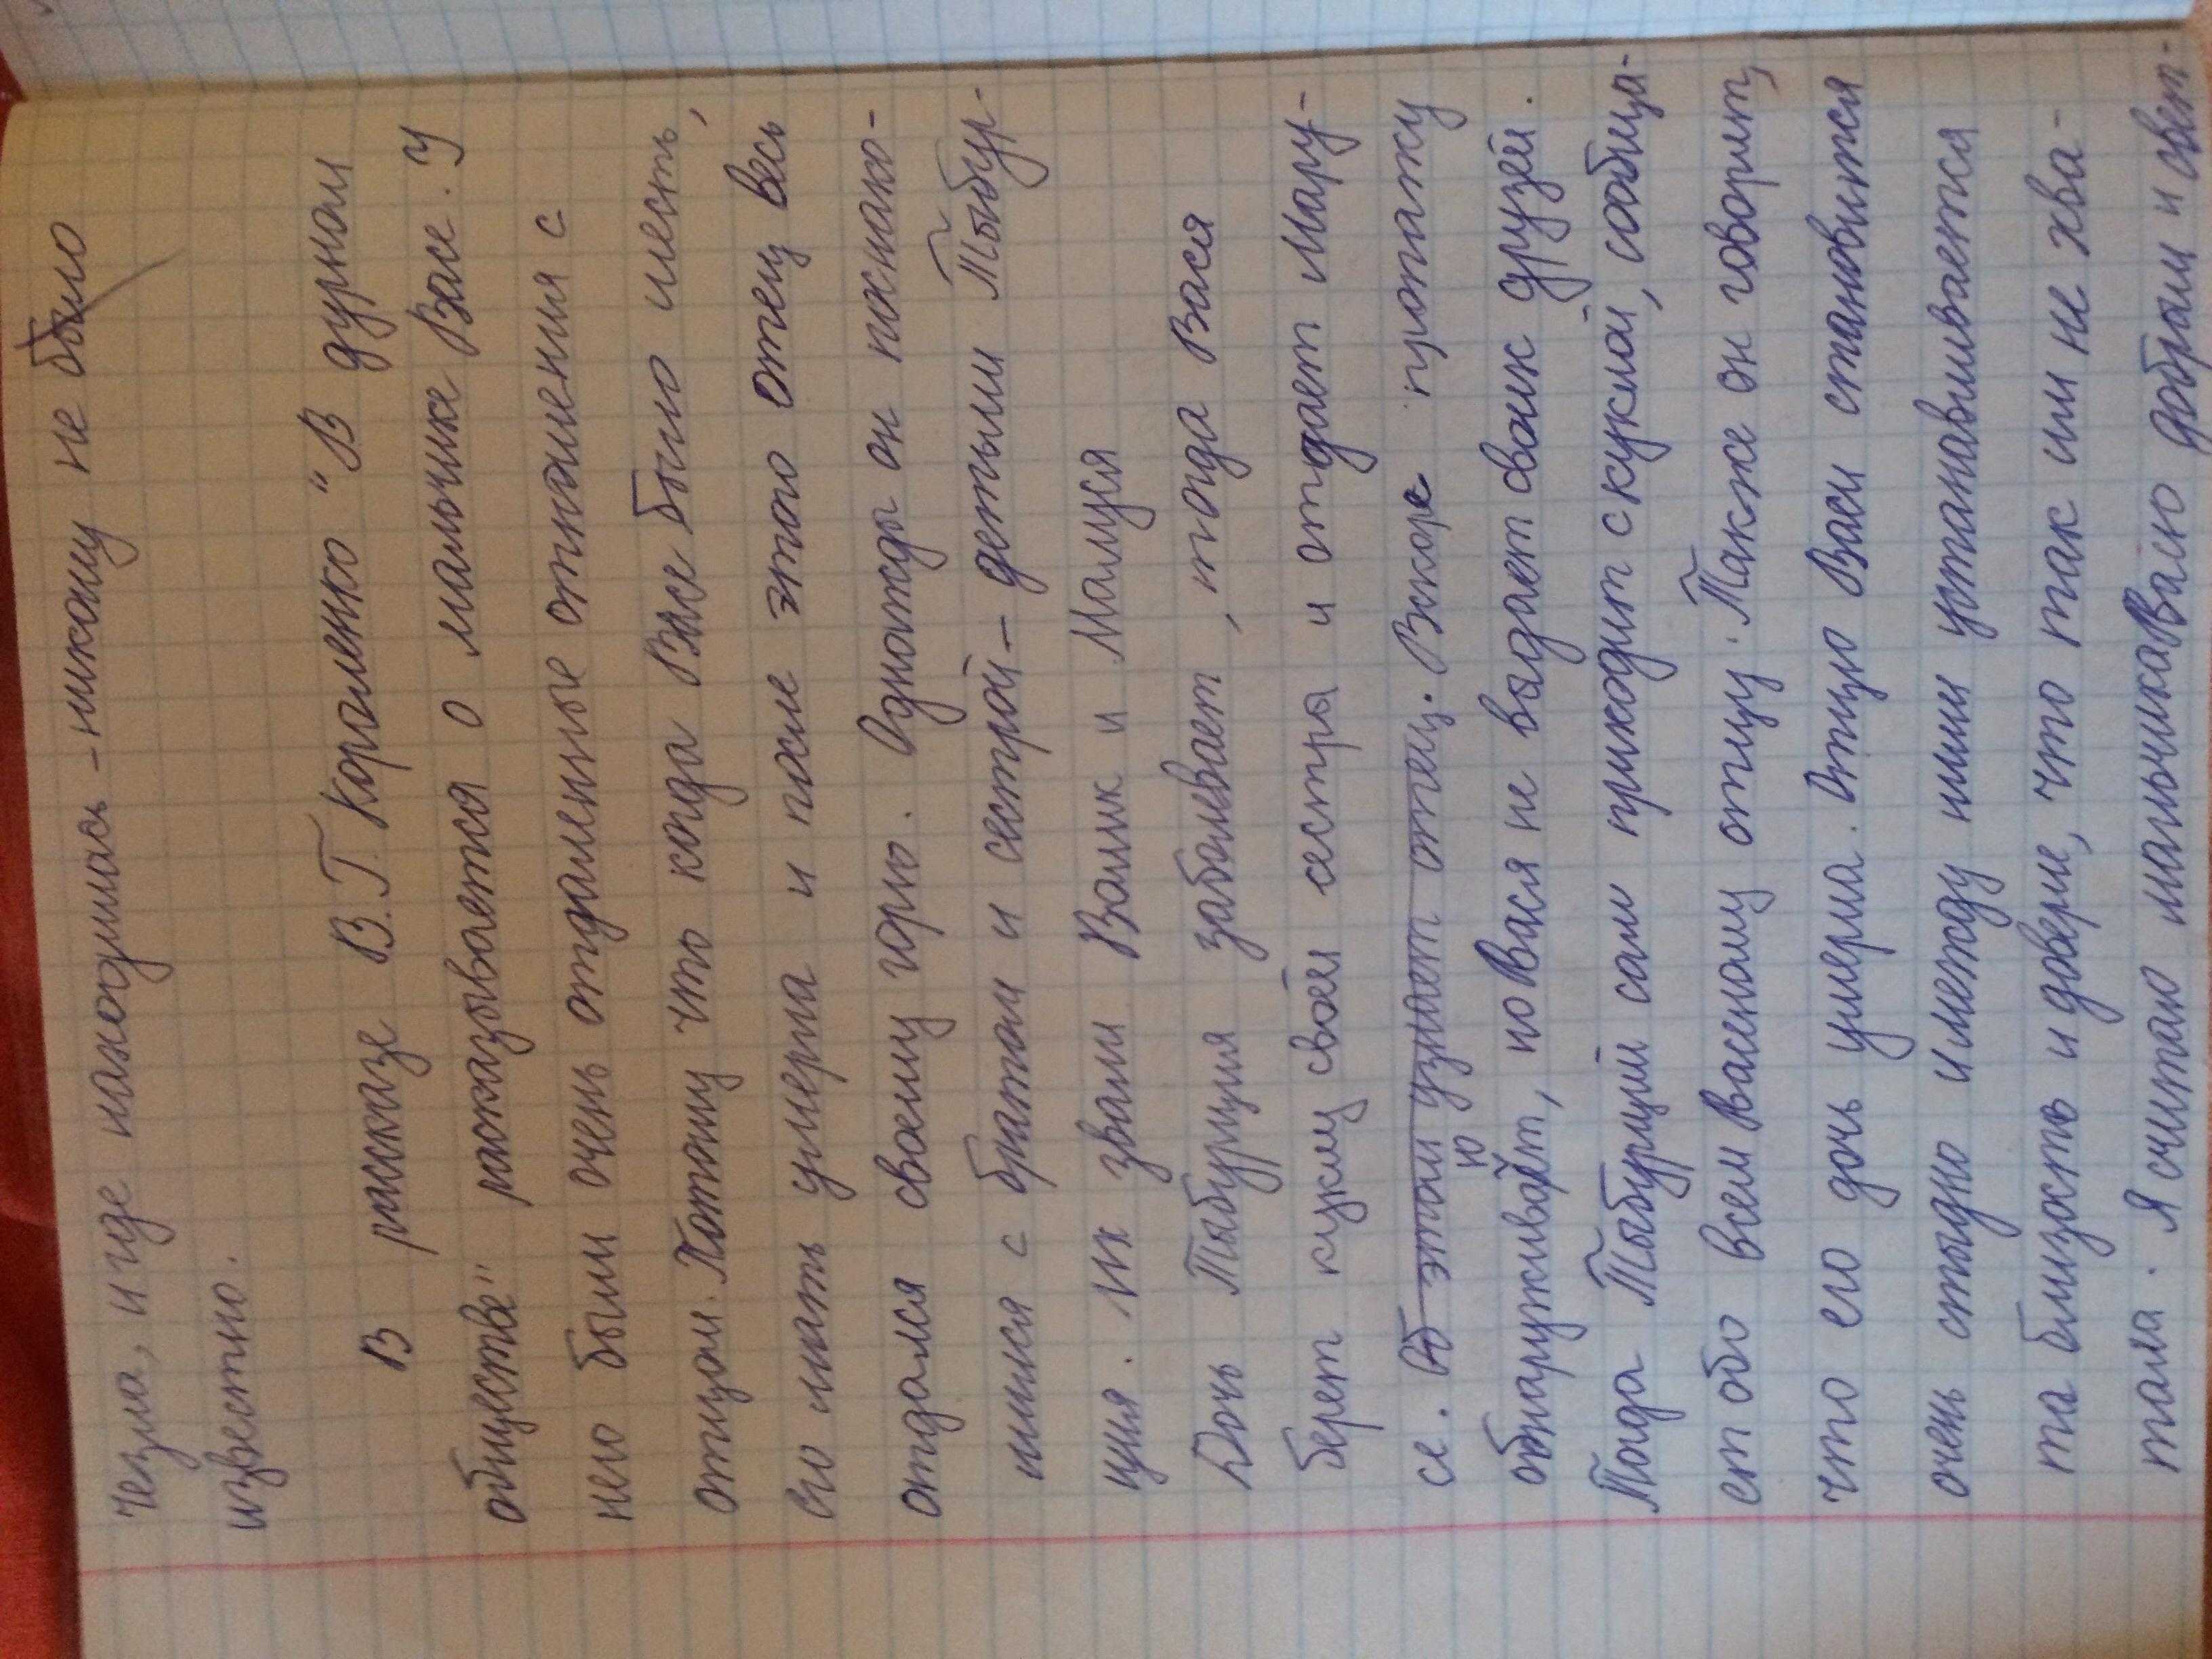 чезла, и где находилась - никому не было
известно.
В рассказе В.Г. Короленко "В дурном
обществе" рассказывается о мальчике Васе. У
него были очень отдаленные отношения с
отцом. Потому что когда Васе было шесть,
его мать умерла и после этого отец весь
отдался своему горю. Однажды он познако-
мился с братом и сестрой - детьми Тыбур-
ция. Их звали Валик и Маруся
Дочь Тыбурция заболевает, тогда Вася
берет куклу своей сестры и отдает Мару-
се. Об этом узнает отец. Вскоре пропажу
обнаруживают, но Вася не выдает своих друзей.
Тогда Тыбурций сам приходит с куклой, сообща-
ет обо всем Васеному отцу. Также он говорит,
что его дочь умерла. Отцу Васи становится
очень стыдно и между ними устанавливается
та близость и доверие, что так им не хва-
тала. Я считаю мальчика Васю добрым и